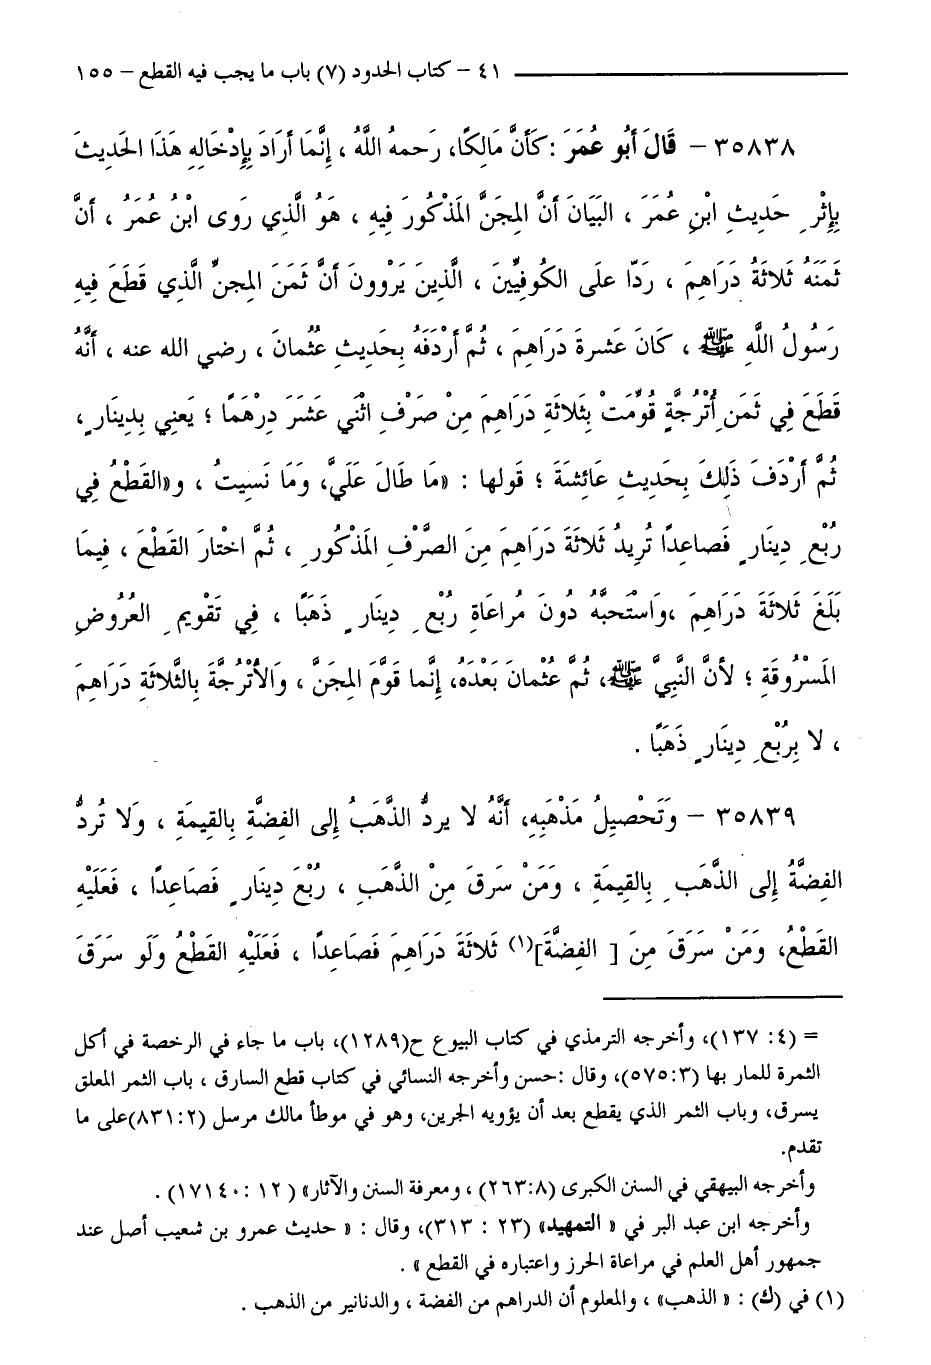 ٤١ – كتاب الحدود (٧) باب ما يجب فيه القطع – ١٥٥
٣٥٨٣٨ – قَالَ أَبُو عُمَرَ : كَأَنَّ مَالِكًا، رَحمهُ اللَّهُ ، إِنَّمَا أَرَادَ بِإِدْخَالِهِ هَذَا الحَدِيثَ
بِإِثْرِ حَدِيثِ ابْنِ عُمَرَ ، البَيَانَ أَنَّ المِجَنَّ المَذْكُورَ فِيهِ ، هَوُ الَّذِي رَوى ابْنُ عُمَرُ ، أَنَّ
ثَمَنَهُ ثَلاثَةُ دَرَاهِمَ ، رَدّا علَى الكُوفِيِّينَ ، الَّذِينَ يَرْوونَ أَنَّ ثَمَنَ المِجنِّ الَّذِي قَطَعَ فِيهِ
رَسُولُ اللَّهِ ﷺ ، كَانَ عَشرةَ دَرَاهِمَ ، ثُمَّ أَرْدَفَهُ بِحَدِيثِ عثُمانَ ، رضي الله عنه ، أَنَّهُ
قَطَعَ فِي ثَمَنِ أُتْرُجَّةٍ قُوِّمَتْ بِثَلاثَةِ دَرَاهِمَ مِنْ صَرْفِ اثْنَي عَشَرَ دِرْهَمًا ؛ يَعنِي بِدِينَارٍ،
ثُمَّ أَرْدَفَ ذَلِكَ بِحَدِيثِ عَائِشَةَ ؛ قَولها : «مَا طَالَ عَلَيَّ، وَمَا نَسِيتُ ، و«القَطْعُ فِي
رُبْعِ دِينَارٍ فَصاعِداً تُرِيدُ ثَلاثَةَ دَرَاهِمَ مِنَ الصَّرْفِ المَذْكُورِ ، ثُمَّ اخْتارَ القَطْعَ ، فِيمَا
بَلَغَ ثَلاثَةَ دَرَاهِمَ ،وَاسْتَحبَّهُ دُونَ مُراعَاةِ رُبْعِ دِينَارٍ ذَهَبًا ، فِي تَقْويمِ العُرُوضِ
المَسْرُوقَةِ ؛ لأَنَّ النَّبِيَّ ﷺ، ثُمَّ عُثْمانَ بَعْدَهُ، إِنَّما قَوَّمَ المِجَنَّ ، وَالأُتْرُجَّةَ بِالثَّلاثَةِ دَرَاهِمَ
، لا بِرُبْعِ دِينَارٍ ذَهَبًا .
٣٥٨٣٩ – وَتَحْصِيلُ مَذْهَبِهِ، أَنَّهُ لا يردُّ الذَّهَبَُ إِلى الفِضَّةِ بِالقِيمَةِ ، وَلا تُردُّ
الفِضَّةُ إِلى الذَّهَبِ بِالقِيمَةِ ، وَمَنْ سَرقَ مِنْ الذَّهَبِ ، رُبْعَ دِينَارٍ فَصَاعِدًا ، فَعَلَيْهِ
القَطْعُ، وَمَنْ سَرَقَ مِنَ [ الفِضَّةَ](١) ثَلاثَةَ دَرَاهِمَ فَصَاعِدًا ، فَعَلَيْهِ القَطْعُ وَلَو سَرَقَ
= (٤: ١٣٧)، وأخرجه الترمذي في كتاب البيوع ح(١٢٨٩)، باب ما جاء في الرخصة في أكل
الثمرة للمار بها (٥٧٥:٣)، وقال :حسن وأخرجه النسائي في كتاب قطع السارق ، باب الثمر المعلق
يسرق، وباب الثمر الذي يقطع بعد أن يؤويه الجرين، وهو في موطأ مالك مرسل (٨٣١:٢)على ما
تقدم.
وأخرجه البيهقي في السنن الكبرى (٢٦٣:٨) ، ومعرفة السنن والآثار» ( ١٢ :١٧١٤٠) .
وأخرجه ابن عبد البر في « التمهيد» (٢٣ : ٣١٣)، وقال : « حديث عمرو بن شعيب أصل عند
جمهور أهل العلم في مراعاة الحرز واعتباره في القطع » .
(١) في (ك) : « الذهب» ، والمعلوم أن الدراهم من الفضة ، والدنانير من الذهب .